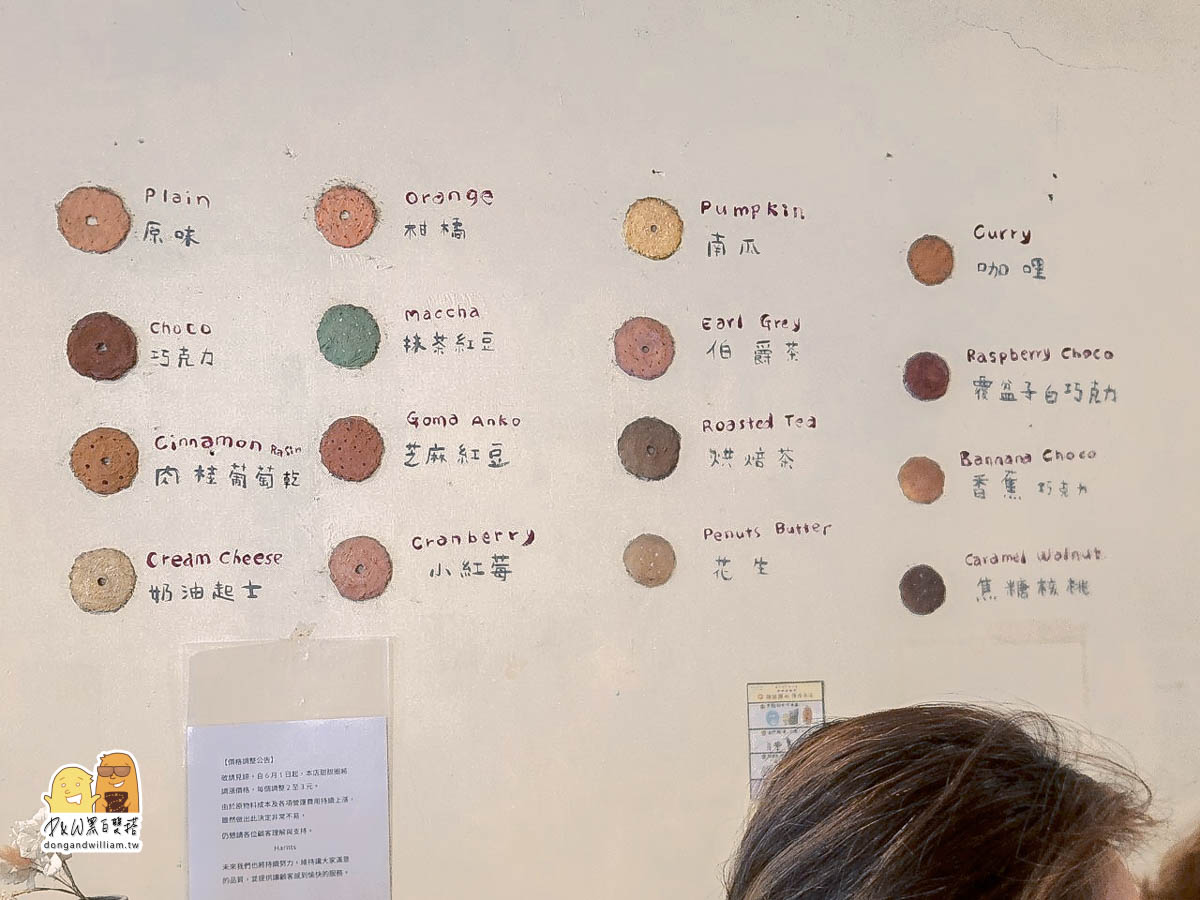 Plain
原味
Choco
巧克力
Cinnamon Rasin
肉桂葡萄乾
Cream Cheese
奶油起士
orange
柑橘
maccha
抹茶紅豆
Goma Anko
芝麻紅豆
Cranberry
小紅莓
Pumpkin
南瓜
Earl Grey
伯爵茶
Roasted Tea
烘焙茶
Penuts Butter
花生
Curry
咖哩
Raspberry Choco
覆盆子白巧克力
Bannana Choco
香蕉巧克力
Caramel Walnut
焦糖核桃
【價格調整公告】
敬請見諒，自6月1日起，本店甜甜圈將
調漲價格，每個調整2至3元。
由於原物料成本及各項營運費用持續上漲，
雖然做出此決定非常不易，
仍懇請各位顧客理解與支持。
Harits
未來我們也將持續努力，維持讓大家滿意
的品質，並提供讓顧客感到愉快的服務。
D&W黑白雙搭
dongandwilliam.tw